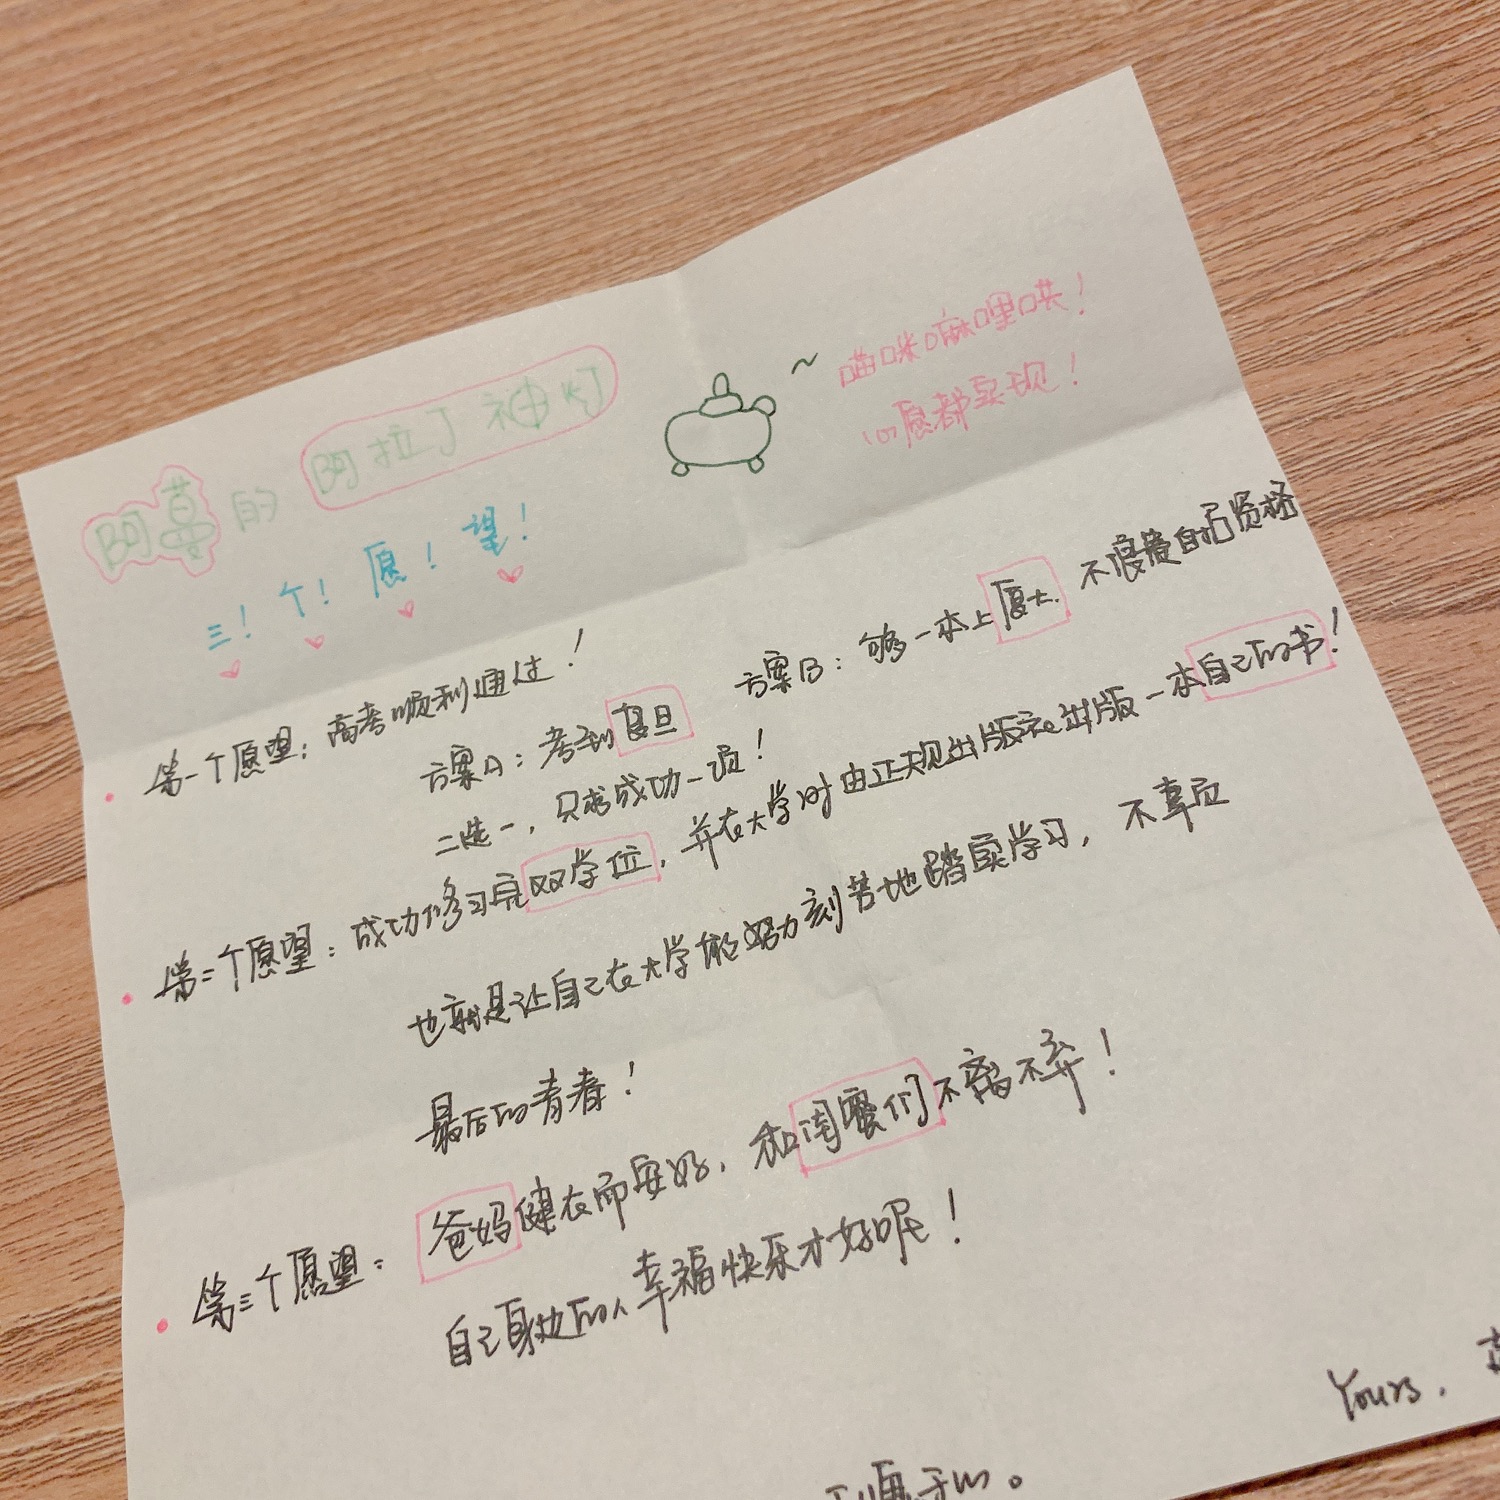 阿蔓的阿拉丁神灯
喵咪嘛哩哄!
心愿都实现!
三!个!愿!望!
第一个愿望:高考顺利通过!
方案A:考到复旦
方案B:够一本上厦大.不浪费自招资格
二选一,只求成功一项!
第二个愿望:成功修习完双学位,并在大学时由正规出版社出版一本自己的书!
也就是让自己在大学能努力刻苦地踏实学习,不辜负
最后的青春!
第三个愿望:爸妈健在而安好,和闺蜜们不离不弃!
自己身边的人幸福快乐才好呢!
Yours.